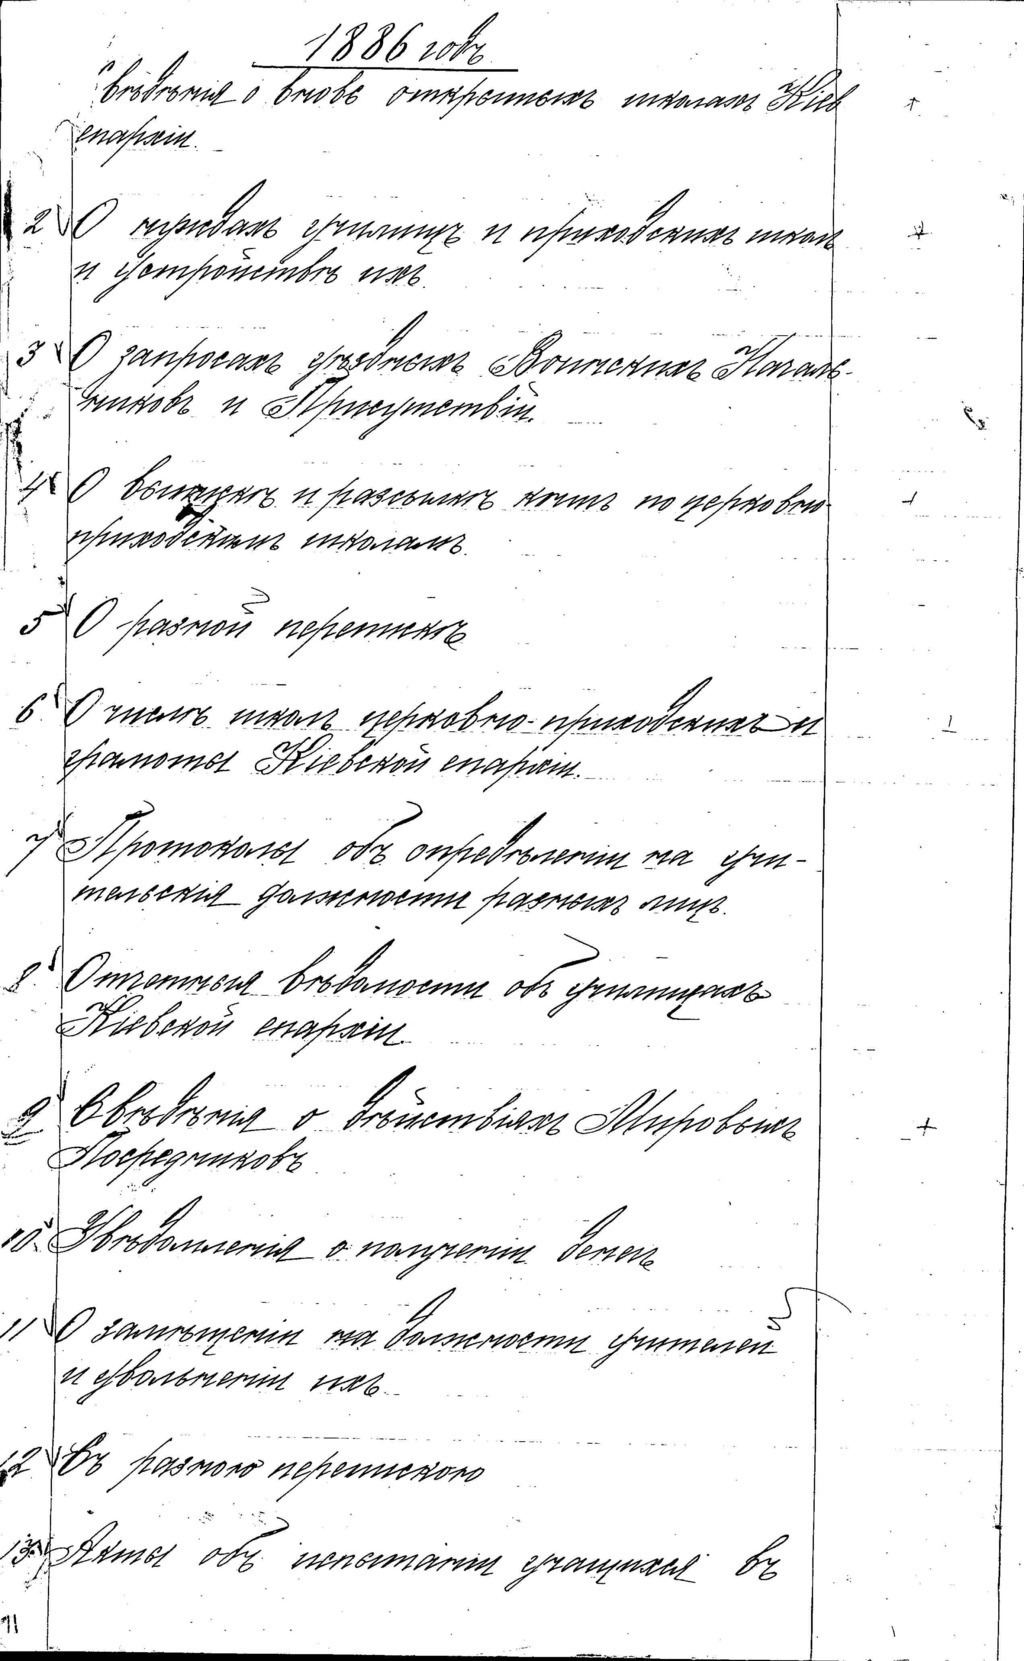 1886 годъ
Свѣдѣнія о вновь открытыхъ школахъ Кіев
епархіи.
2 О нуждахъ училищъ и приходскихъ школъ
и устройствѣ ихъ.
3 О запросахъ уѣздныхъ Воинскихъ Началь-
никовъ и Присутствій.
4 О выпискѣ и разсылкѣ книгъ по церковно-
приходскимъ школамъ.
5 О разной перепискѣ
6 О числѣ школъ церковно-приходскихъ и
грамоты Кіевской епархіи.
7 Протоколы объ опредѣленіи на учи-
тельскія должности разныхъ лицъ.
8. Отчетныя вѣдомости объ училищахъ
Кіевской епархіи.
9 Свѣдѣнія о дѣйствіяхъ Мировыхъ
Посредниковъ
10 Увѣдомленія о полученіи денегъ
11 О замѣщеніи на должности учителей
и увольненіи ихъ
12 Съ разною перепискою
13 Акты объ испытаніи учащихся въ